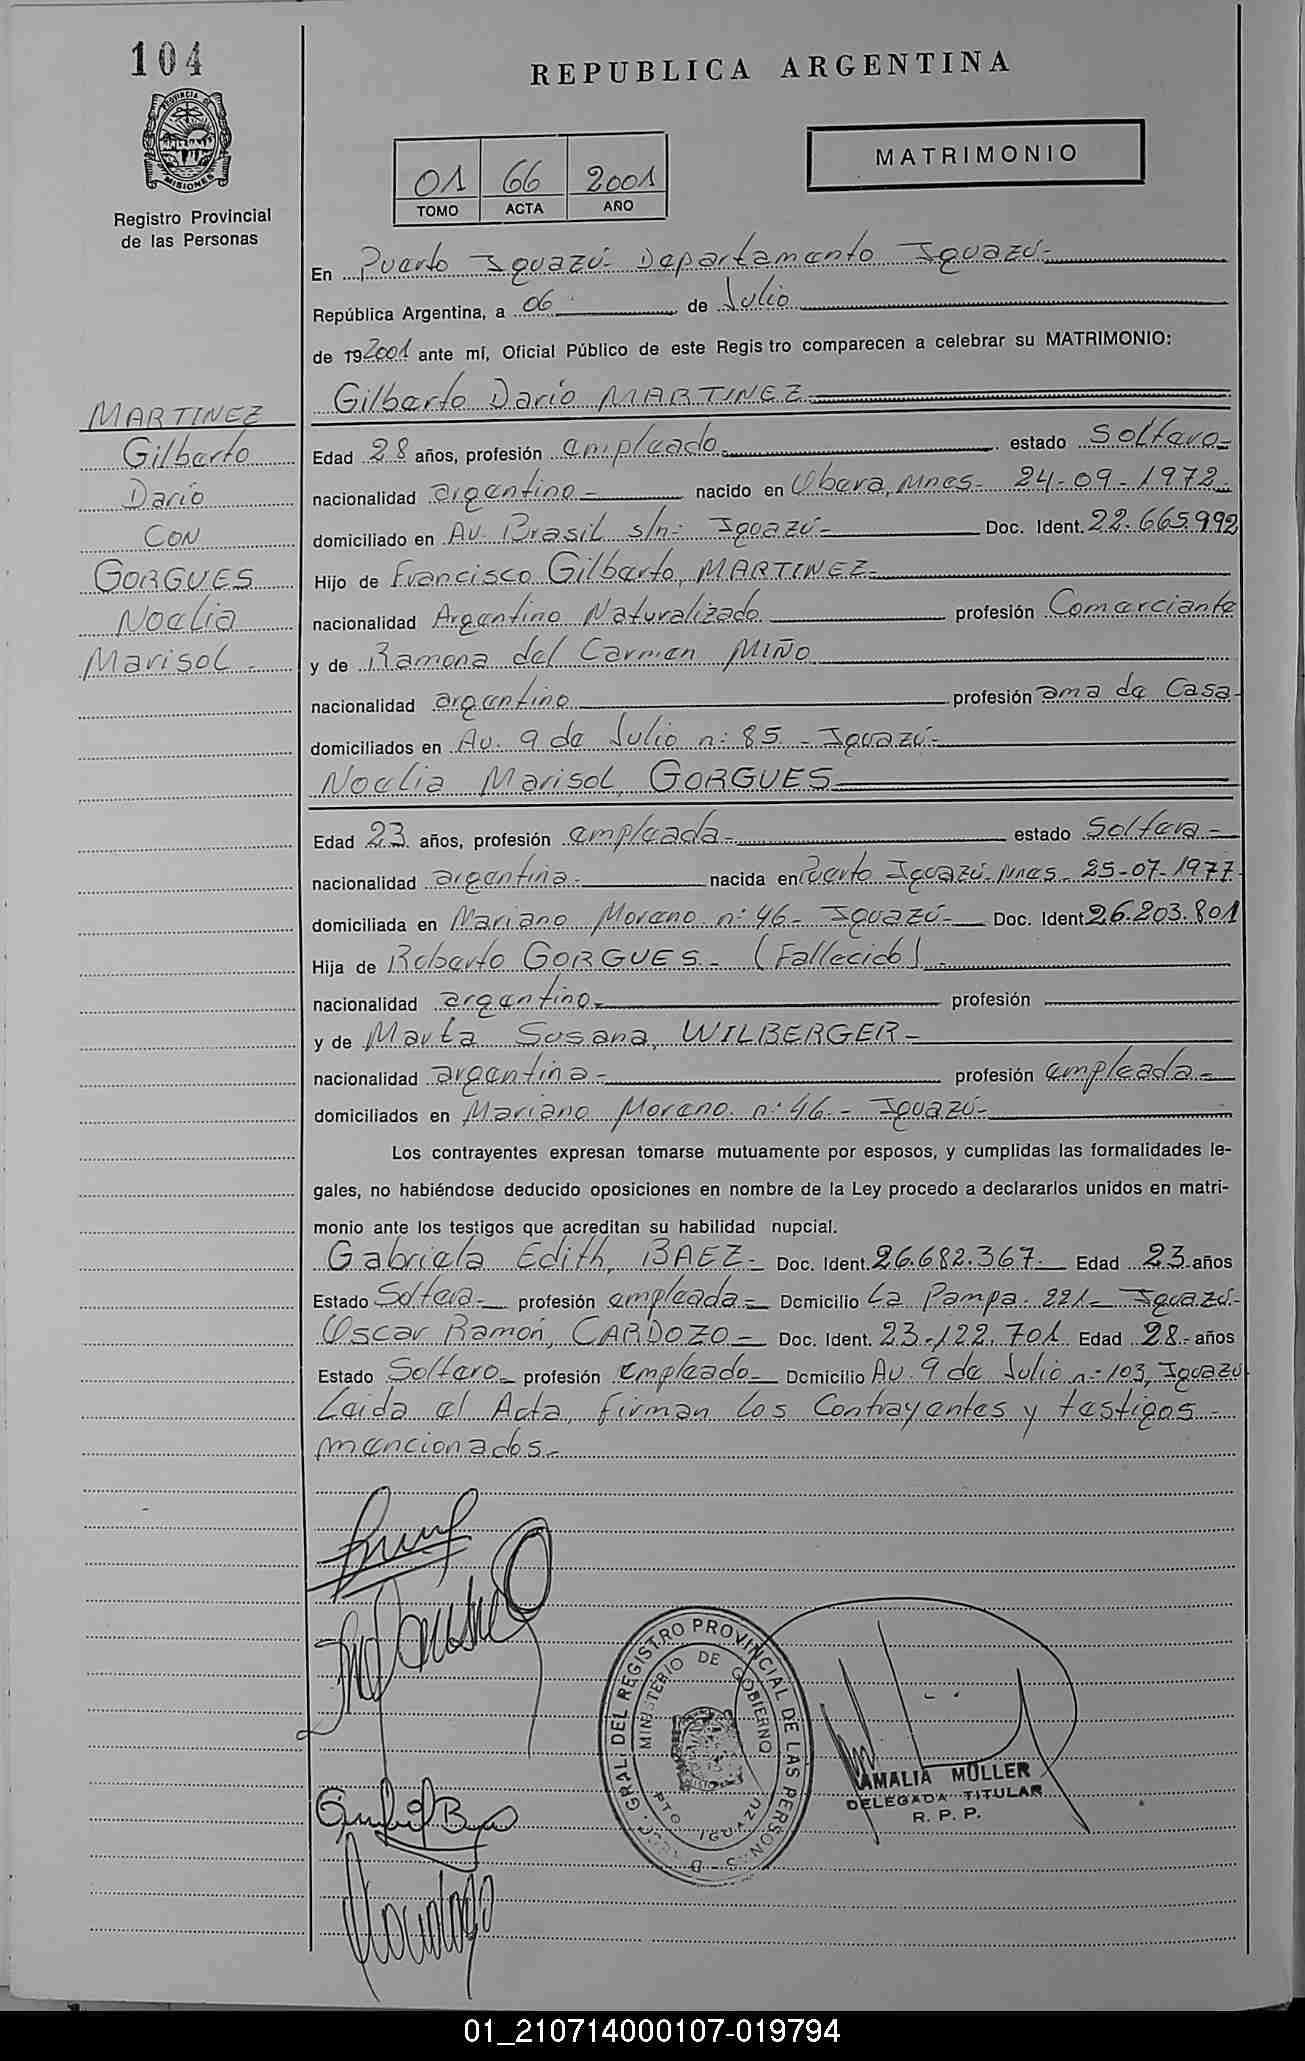 104
REPUBLICA ARGENTINA
PROVINCIA DE MISIONES
Registro Provincial
de las Personas
01 66 2001
TOMO ACTA AÑO
MATRIMONIO
En Puerto Iguazú- Departamento Iguazú-
República Argentina, a 06 de Julio
de 192001 ante mí, Oficial Público de este Registro comparecen a celebrar su MATRIMONIO:
MARTINEZ
Gilberto
Dario
CON
GORGUES
Noelia
Marisol.-
Gilberto Dario MARTINEZ
Edad 28 años, profesión empleado.- estado Soltero-
nacionalidad argentino- nacido en Obera, Mnes- 24-09-1972-
domiciliado en Av. Brasil s/n: Iguazú- Doc. Ident. 22.665.992
Hijo de Francisco Gilberto, MARTINEZ-
nacionalidad Argentino Naturalizado profesión Comerciante
y de Ramona del Carmen MIÑO
nacionalidad argentino profesión ama de Casa-
domiciliados en Av. 9 de Julio n: 85 - Iguazú-
Noelia Marisol, GORGUES
Edad 23 años, profesión empleada- estado Soltera-
nacionalidad argentina- nacida en Puerto Iguazú- Mnes- 25-07-1977-
domiciliada en Mariano Moreno n: 46- Iguazú- Doc. Ident. 26.203.801
Hija de Roberto GORGUES- (Fallecido)-
nacionalidad argentino- profesión
y de Marta Susana, WILBERGER-
nacionalidad argentina- profesión empleada-
domiciliados en Mariano Moreno n: 46- Iguazú-
Los contrayentes expresan tomarse mutuamente por esposos, y cumplidas las formalidades le-
gales, no habiéndose deducido oposiciones en nombre de la Ley procedo a declararlos unidos en matri-
monio ante los testigos que acreditan su habilidad nupcial.
Gabriela Edith, BAEZ- Doc. Ident. 26.682.367- Edad 23 años
Estado Soltera- profesión empleada- Domicilio La Pampa- 221- Iguazú-
Oscar Ramón, CARDOZO- Doc. Ident. 23.122.701 Edad 28- años
Estado Soltero- profesión empleado- Domicilio Av. 9 de Julio n: 103, Iguazú
Leida el Acta, firman los Contrayentes y testigos-
mencionados-
GRAL. DEL REGISTRO PROVINCIAL DE LAS PERSONAS
MINISTERIO DE GOBIERNO
PTO. IGUAZU
AMALIA MULLER
DELEGADA TITULAR
R. P. P.
01_210714000107-019794